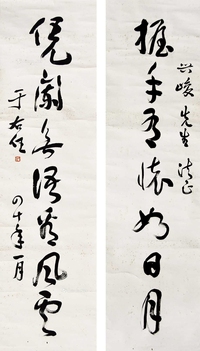 興峻先生法正
握手有懷如日月
凭闌無語看風雲
于右任
四十年一月